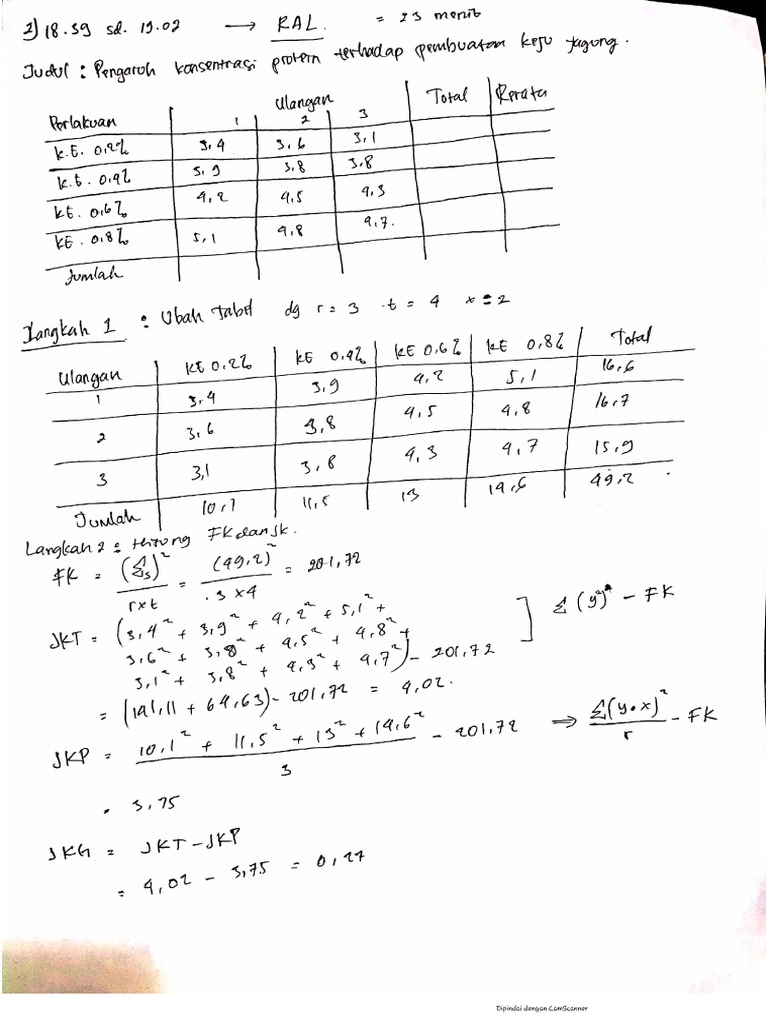 2) 18.39 sd. 19.02 → RAL. = 23 menit
Judul : Pengaruh konsentrasi protein terhadap pembuatan keju jagung.
Perlakuan Ulangan Total Rerata
1 2 3
K.E. 0,2% 3,4 3,6 3,1
K.E. 0,4% 3,9 3,8 3,8
KE. 0,6% 4,2 4,5 4,3
KE. 0,8% 5,1 4,8 4,7.
Jumlah
Langkah 1 : Ubah tabel dg r = 3 . t = 4 x = 2
Ulangan KE 0,2% KE 0,4% KE 0,6% KE 0,8% Total
1 3,4 3,9 4,2 5,1 16,6
2 3,6 3,8 4,5 4,8 16,7
3 3,1 3,8 4,3 4,7 15,9
Jumlah 10,1 11,5 13 14,6 49,2 .
Langkah 2 : Hitung FK dan JK.
FK = (Σs)² / r x t = (49,2)² / 3 x 4 = 201,72
JKT = (3,4² + 3,9² + 4,2² + 5,1² +
3,6² + 3,8² + 4,5² + 4,8² +
3,1² + 3,8² + 4,3² + 4,7²) - 201,72 ] Σ (y²) - FK
= (141,11 + 64,63) - 201,72 = 4,02.
JKP = 10,1² + 11,5² + 13² + 14,6² / 3 - 201,72 ⇒ Σ(y•x)² / r - FK
= 3,75
JKG = JKT - JKP
= 4,02 - 3,75 = 0,27
Dipindai dengan CamScanner